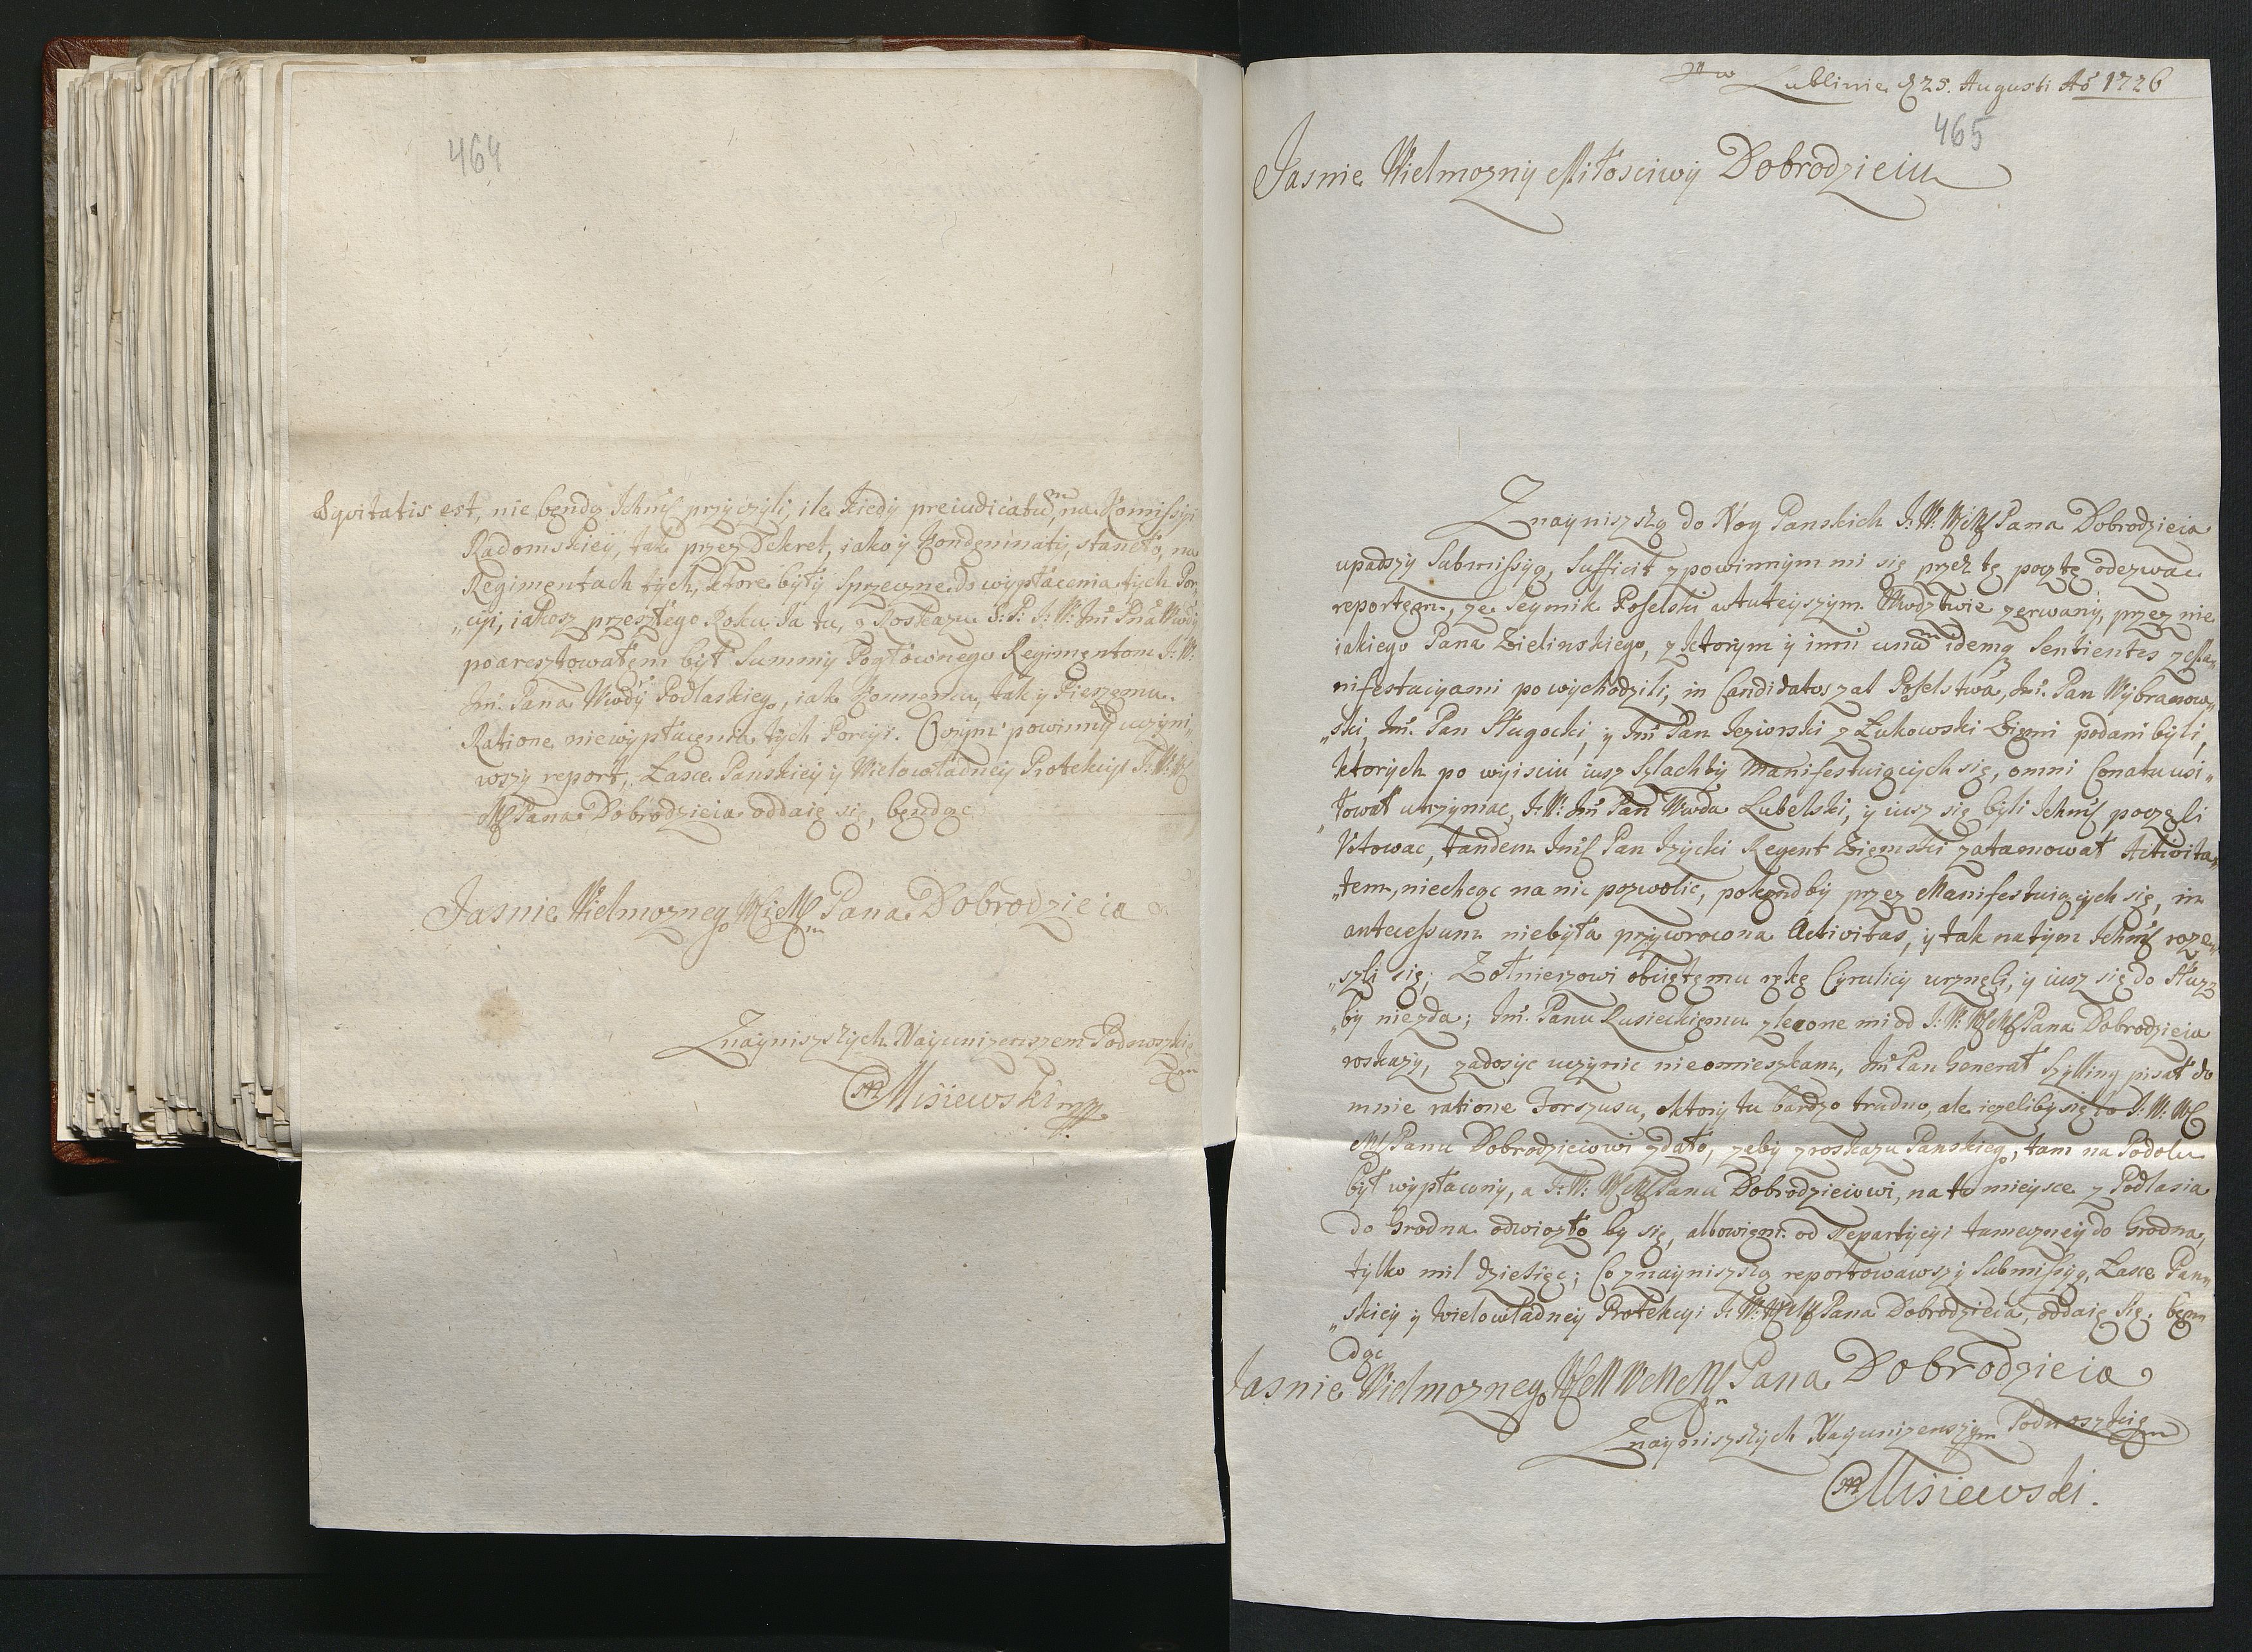 464
Eqvitatis est, nie bendą Ichmś przyczyli, ile kiedy preiudicatum, na Komissyi
Radomskiey, tak przez Dekret, iako y Kondemnaty, staneło, na
Regimentach tych, ktore były sprzeczne do wypłacenia tych Por„
„cyi, iakosz przeszłego Roku Ja tu, z Roskazu Ś: P: J: W: Jmć Pna Wwdy
poaresztowałem był Summy Pogłownego Regimentom J: W:
Jm. Pana Wwdy Podlaskiego, iak Konnemu, tak y Pieszemu.
Ratione niewypłacenia tych Porcyi. Czym powinny uczyni„
wszy report, Łasce Panskiey y Wielowładney Protekcyi J: W: W
M Pana Dobrodzieia oddaię się, bendąc
Jasnie Wielmoznego WMM Pana Dobrodzieia
Znayniszszych Nayunizenszem Podnoszkiem
Misiewski mp
w Lublinie d 25. Augusti Ao 1726
465
Jasnie Wielmozny Miłosciwy Dobrodzieiu
Znayniszszą do Nog Panskich J: W: WMM Pana Dobrodzieia
upadszy Submissyą, Sufficit z powinnym mi się przez tę pocztę odezwac
reportem, ze Seymik Poselski w tuteyszym Wwdztwie zerwany, przez nie
iakiego Pana Zielinskiego, z ktorym y inni unum idemq Sentientes z Ma„
nifestacyami powychodzili, in Candidatos zas Poselstwa, Jmć. Pan Wybranow„
„ski, Jmć. Pan Sługocki, y Jmć Pan Jeziorski z Łukowski Ziemi podani byli,
ktorych po wyisciu iusz Szlachty Manifestuiących się, omni Conatu usi„
„łował utrzymac, J: W: Jmć Pan Wwda Lubelski, y iusz się byli Ichmś poczęli
Votowac, tandem Jmś Pan Izycki Regent Ziemski zatamował Activita„
„tem, niechcąc na nic pozwolic, pokądby przez Manifestuiących się, in
antecessum niebyła przywrocona Activitas, y tak na tym Ichmś roze„
„szli się; Zołnierzowi obciętemu rękę Cyrulicy urzneli, y iusz się do słuz„
„by niezda; Jmć. Panu Rusieckiemu zlecone mi od J: W: WMM Pana Dobrodzieia
roskazy, zadosyc uczynic nieomieszkam, Jmć Pan Generał Szylling pisał do
mnie ratione Forszusu, o ktory tu bardzo trudno, ale iezeliby się to J: W: W
M Panu Dobrodzieiowi zdało, zeby z roskazu Panskiego, tam na Podolu
był wypłacony, a J: W: WMM Panu Dobrodzieiowi, na to mieysce z Podlasia
do Grodna odwiozło by się, albowiem od Repartycyi tameczney do Grodna,
tylko mil dziesięc; Co znayniszszą reportowawszy Submissyą, Łasce Pan„
„skiey y wielowładney Protekcyi J: W: WMM Pana Dobrodzieia, oddaię się, ben„
dąc
Jasnie Wielmoznego Pana Dobrodzieia
Znayniszszych Nayunizenszym Podnoszkiem
Misiewski.